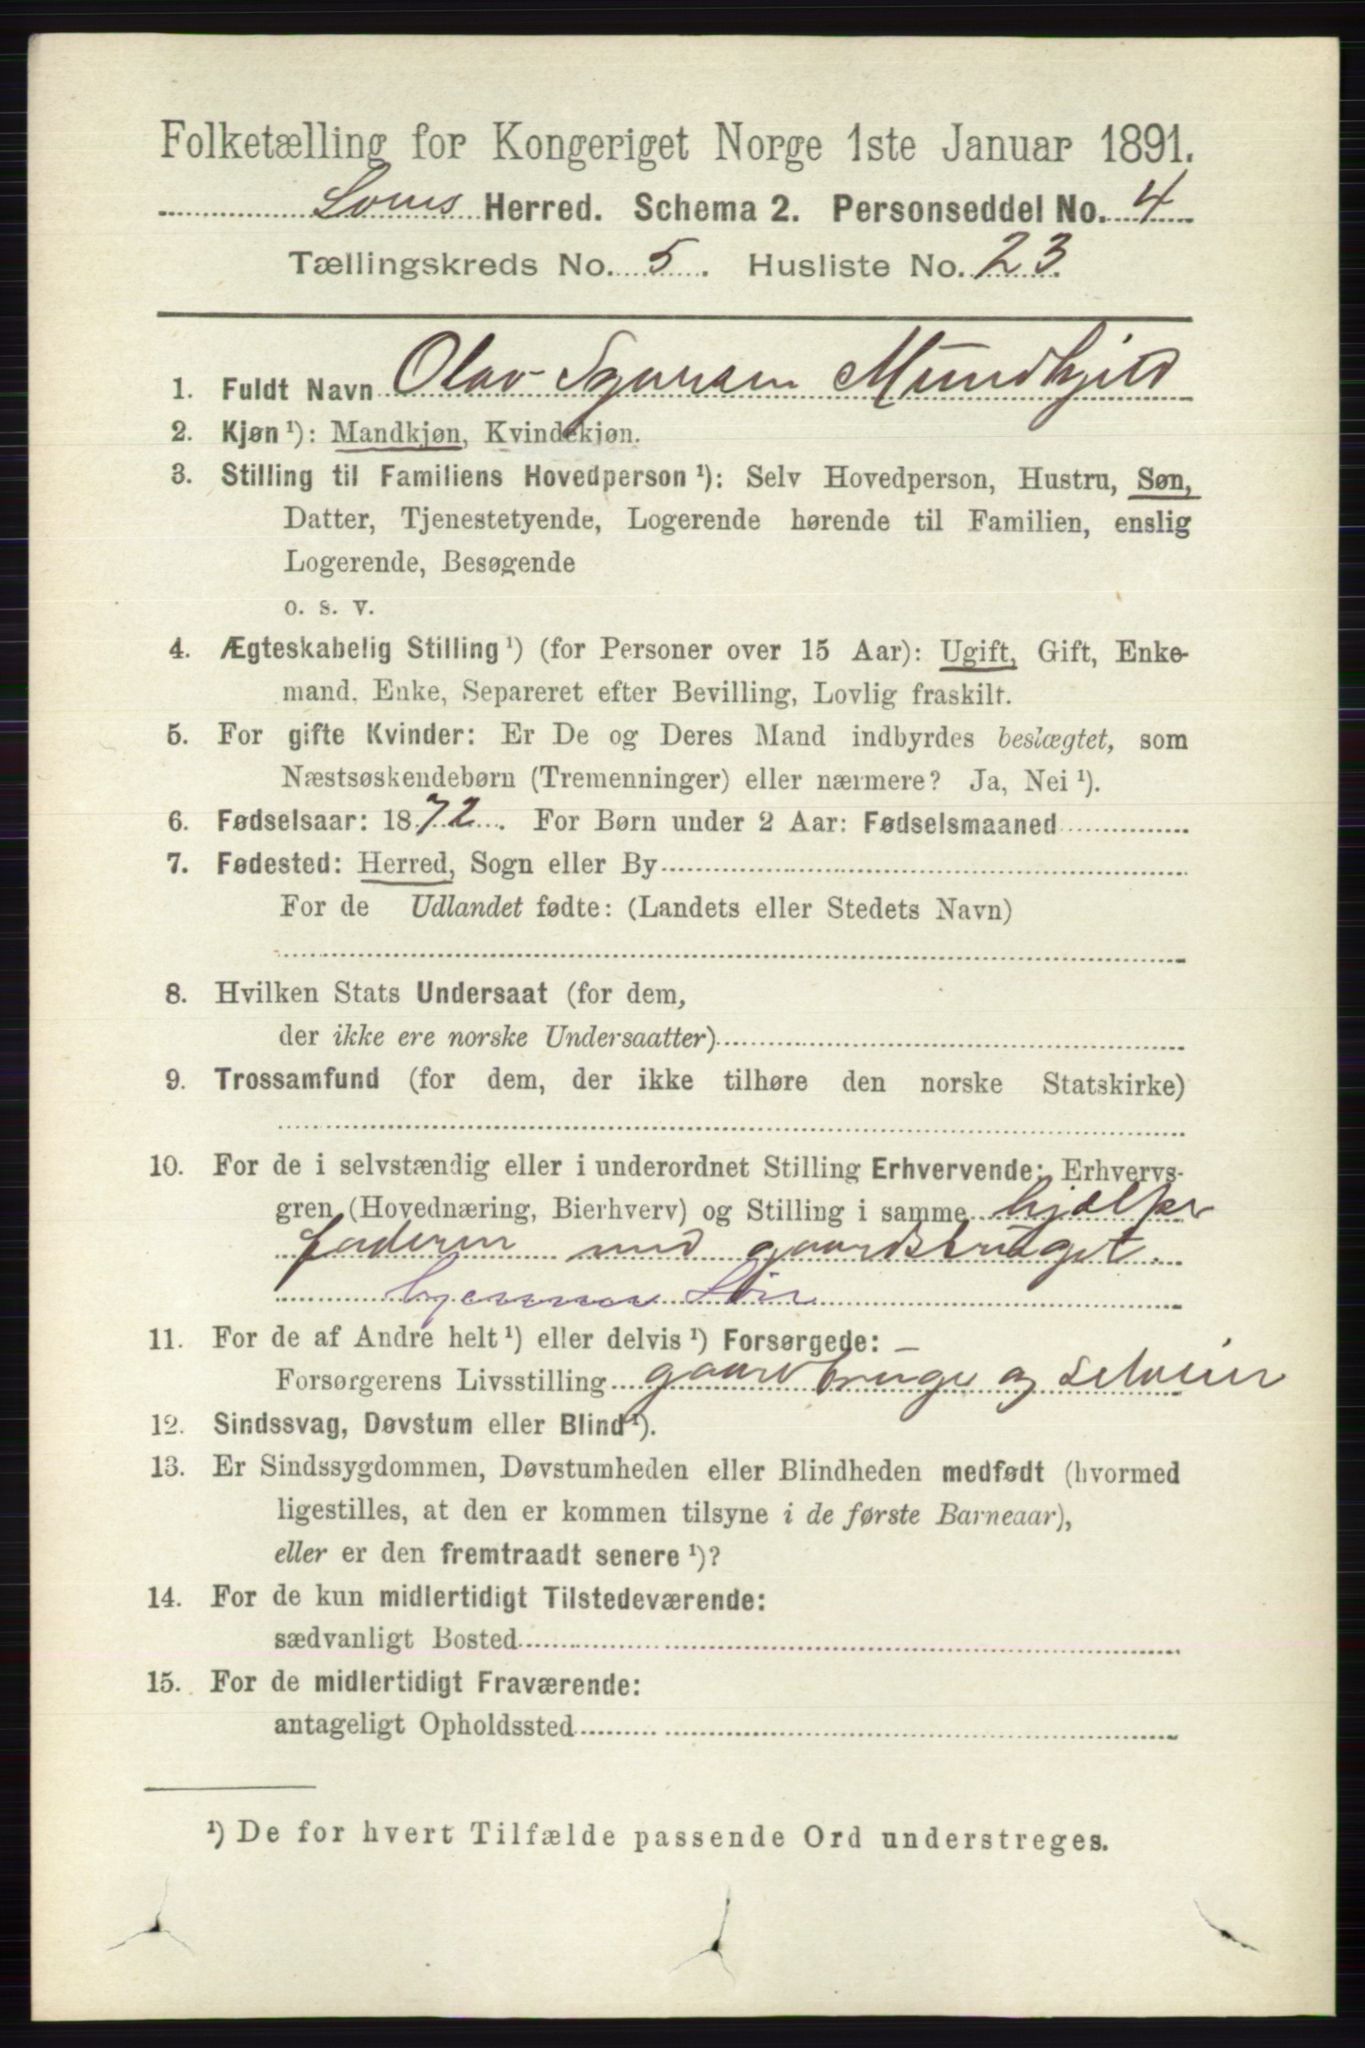 Folketælling for Kongeriget Norge 1ste Januar 1891.
Loms Herred. Schema 2. Personseddel No. 4
Tællingskreds No. 5. Husliste No. 23
1. Fuldt Navn Olav Mundhjeld
2. Kjøn ¹): Mandkjøn, Kvindekjøn.
3. Stilling til Familiens Hovedperson ¹): Selv Hovedperson, Hustru, Søn,
Datter, Tjenestetyende, Logerende hørende til Familien, enslig
Logerende, Besøgende
o. s. v.
4. Ægteskabelig Stilling ¹) (for Personer over 15 Aar): Ugift, Gift, Enke-
mand, Enke, Separeret efter Bevilling, Lovlig fraskilt.
5. For gifte Kvinder: Er De og Deres Mand indbyrdes beslægtet, som
Næstsøskendebørn (Tremenninger) eller nærmere? Ja, Nei ¹).
6. Fødselsaar: 1872. For Børn under 2 Aar: Fødselsmaaned
7. Fødested: Herred, Sogn eller By
For de Udlandet fødte: (Landets eller Stedets Navn)
8. Hvilken Stats Undersaat (for dem,
der ikke ere norske Undersaatter)
9. Trossamfund (for dem, der ikke tilhøre den norske Statskirke)
10. For de i selvstændig eller i underordnet Stilling Erhvervende: Erhvervs-
gren (Hovednæring, Bierhverv) og Stilling i samme hjælper
faderen med gaardsbruget.
hjemmev Søn
11. For de af Andre helt ¹) eller delvis ¹) Forsørgede: –
Forsørgerens Livsstilling gaardbruger og selveier
12. Sindssvag, Døvstum eller Blind ¹).
13. Er Sindssygdommen, Døvstumheden eller Blindheden medfødt (hvormed
ligestilles, at den er kommen tilsyne i de første Barneaar),
eller er den fremtraadt senere ¹)?
14. For de kun midlertidigt Tilstedeværende:
sædvanligt Bosted
15. For de midlertidigt Fraværende:
antageligt Opholdssted
¹) De for hvert Tilfælde passende Ord understreges.